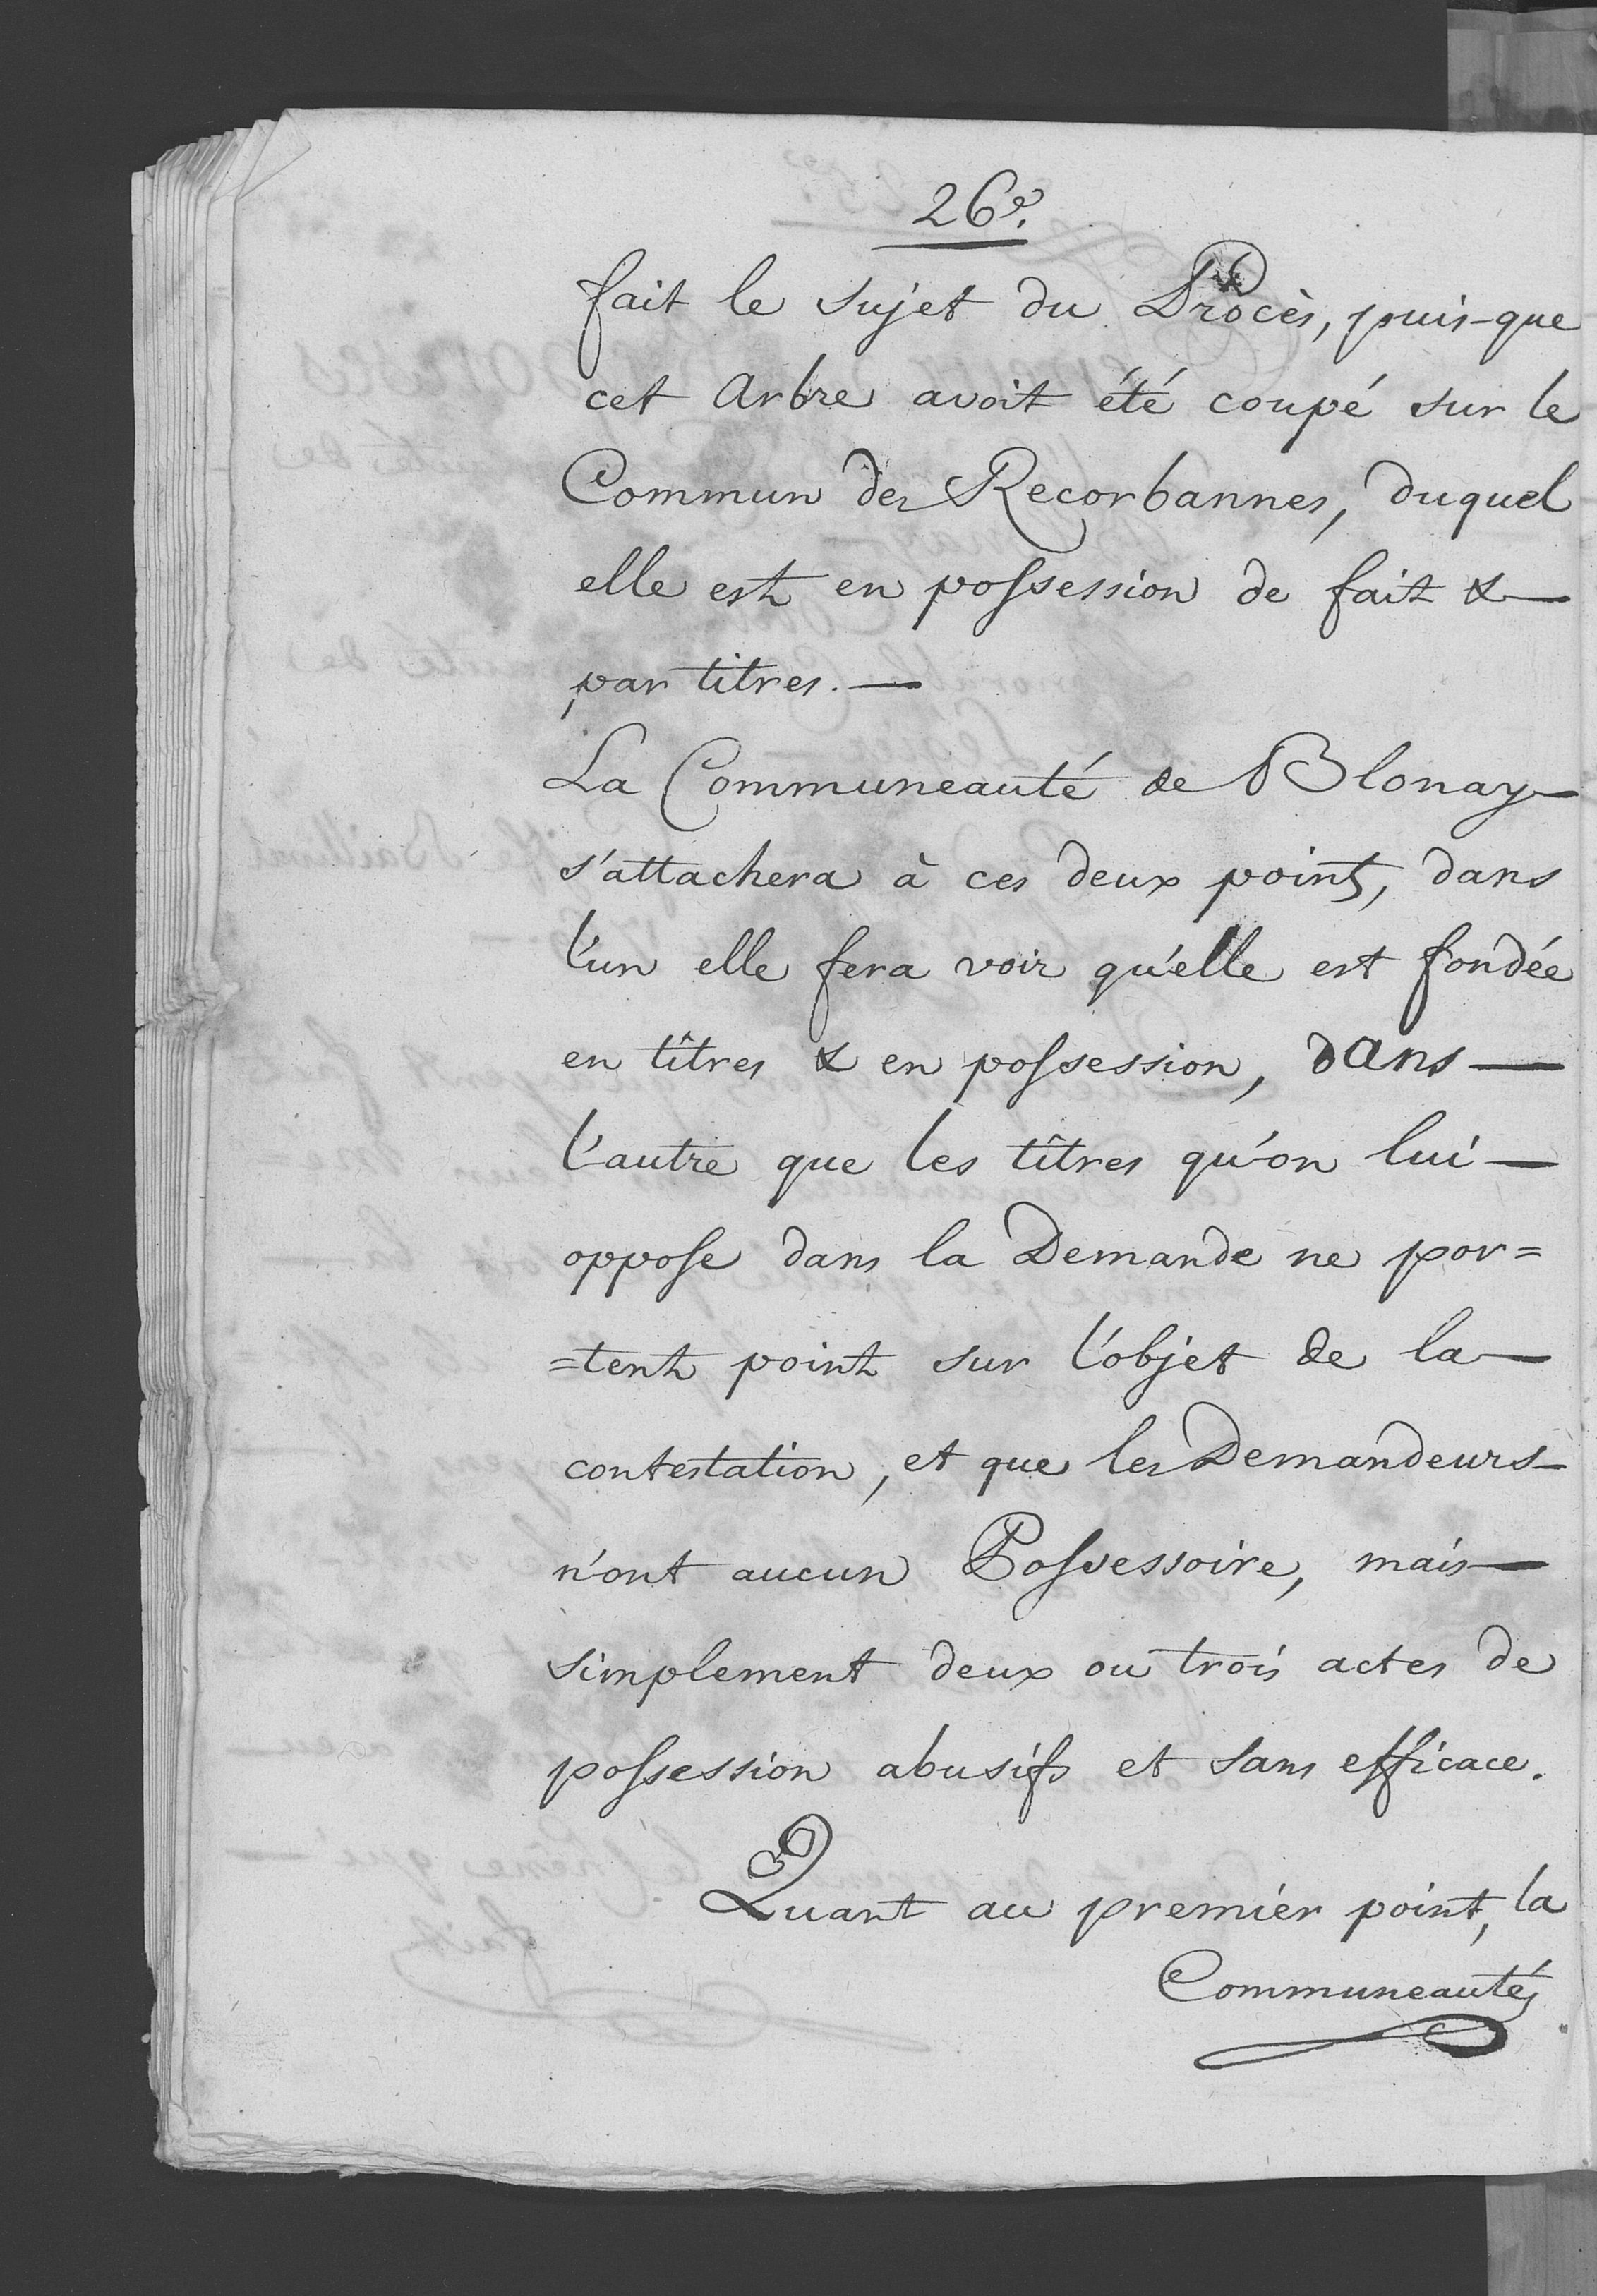 26e.
fait le sujet du Procès, puis-que
cet Arbre avoit été coupé sur le
Commun des Recorbannes, duquel
elle est en possession de fait &
par titres. —
La Communeauté de Blonay —
s'attachera à ces deux points, dans
l'un elle fera voir qu'elle est fondée
en tîtres & en possession, dans —
l'autre que les tîtres qu'on lui —
oppose dans la Demande ne por=
=tent point sur l'objet de la —
contestation, et que les Demandeurs —
n'ont aucun Possessoire, mais —
simplement deux ou trois actes de
possession abusifs et sans efficace.
Quant au premier point, la
Communeauté